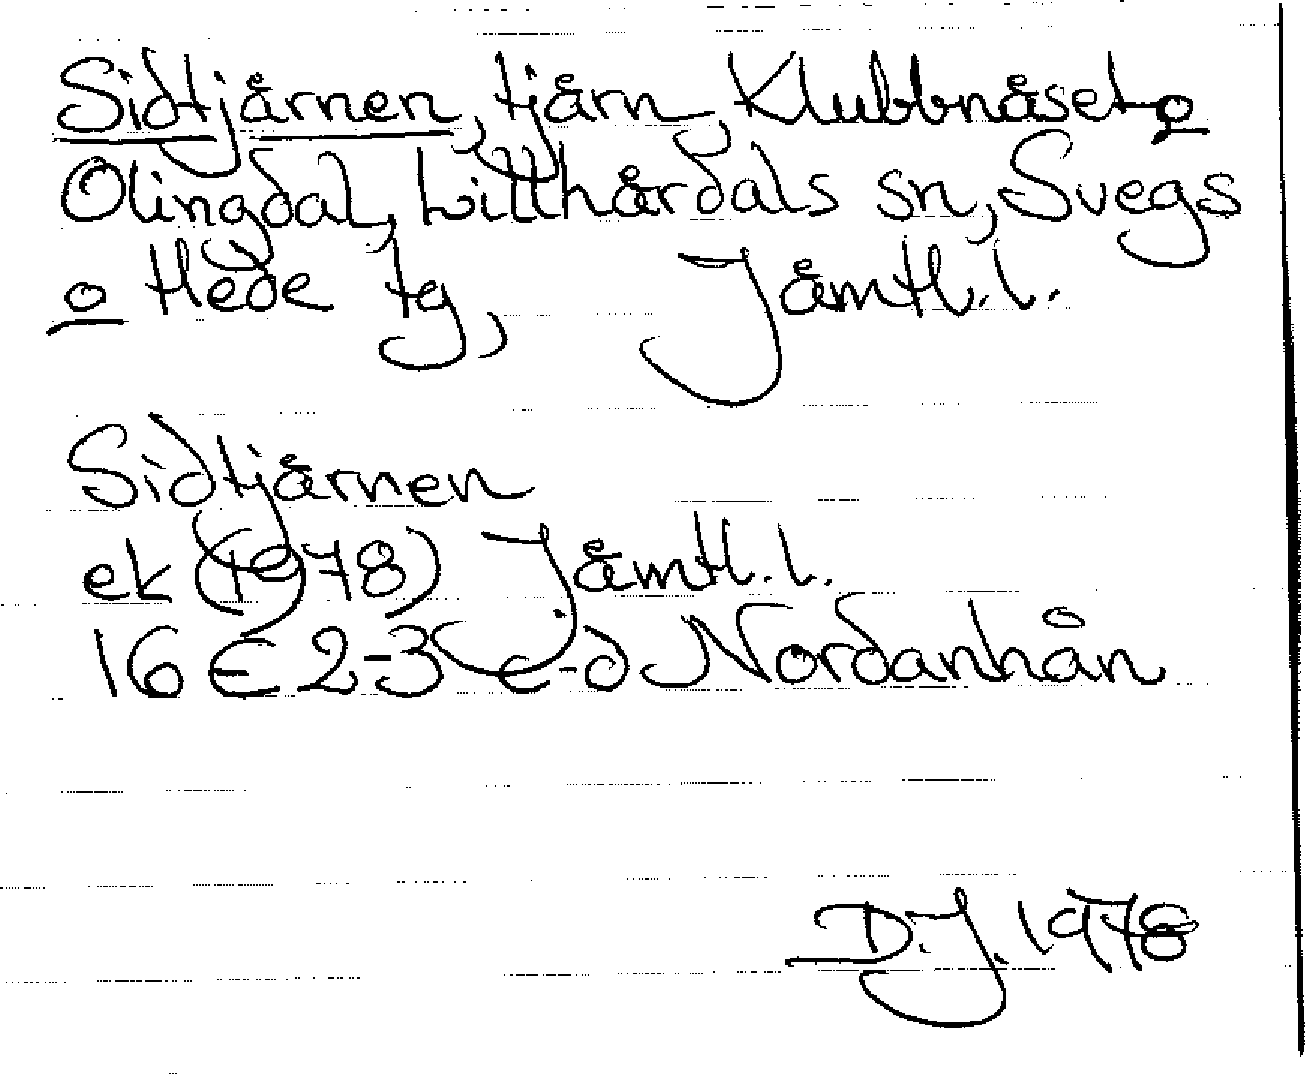 Sidtjärnen, tjärn, Klubbnäset o
Olingdal, Lillhärdals sn, Svegs
o Hede tg, Jämtl. l.
Sidtjärnen
ek (1978) Jämtl. l.
16 E 2-3 c-d Nordanhån
D.J. 1978